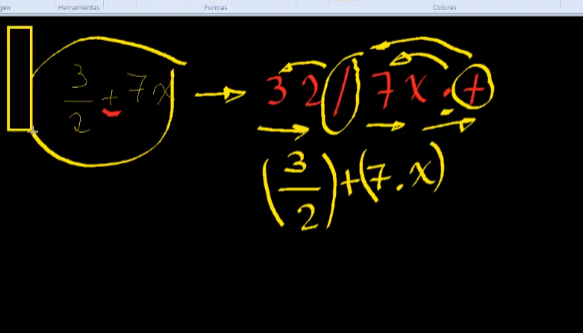 gen Herramientas Formas Colores
3/2 + 7x → 3 2 / 7 x . +
(3/2) + (7 . x)